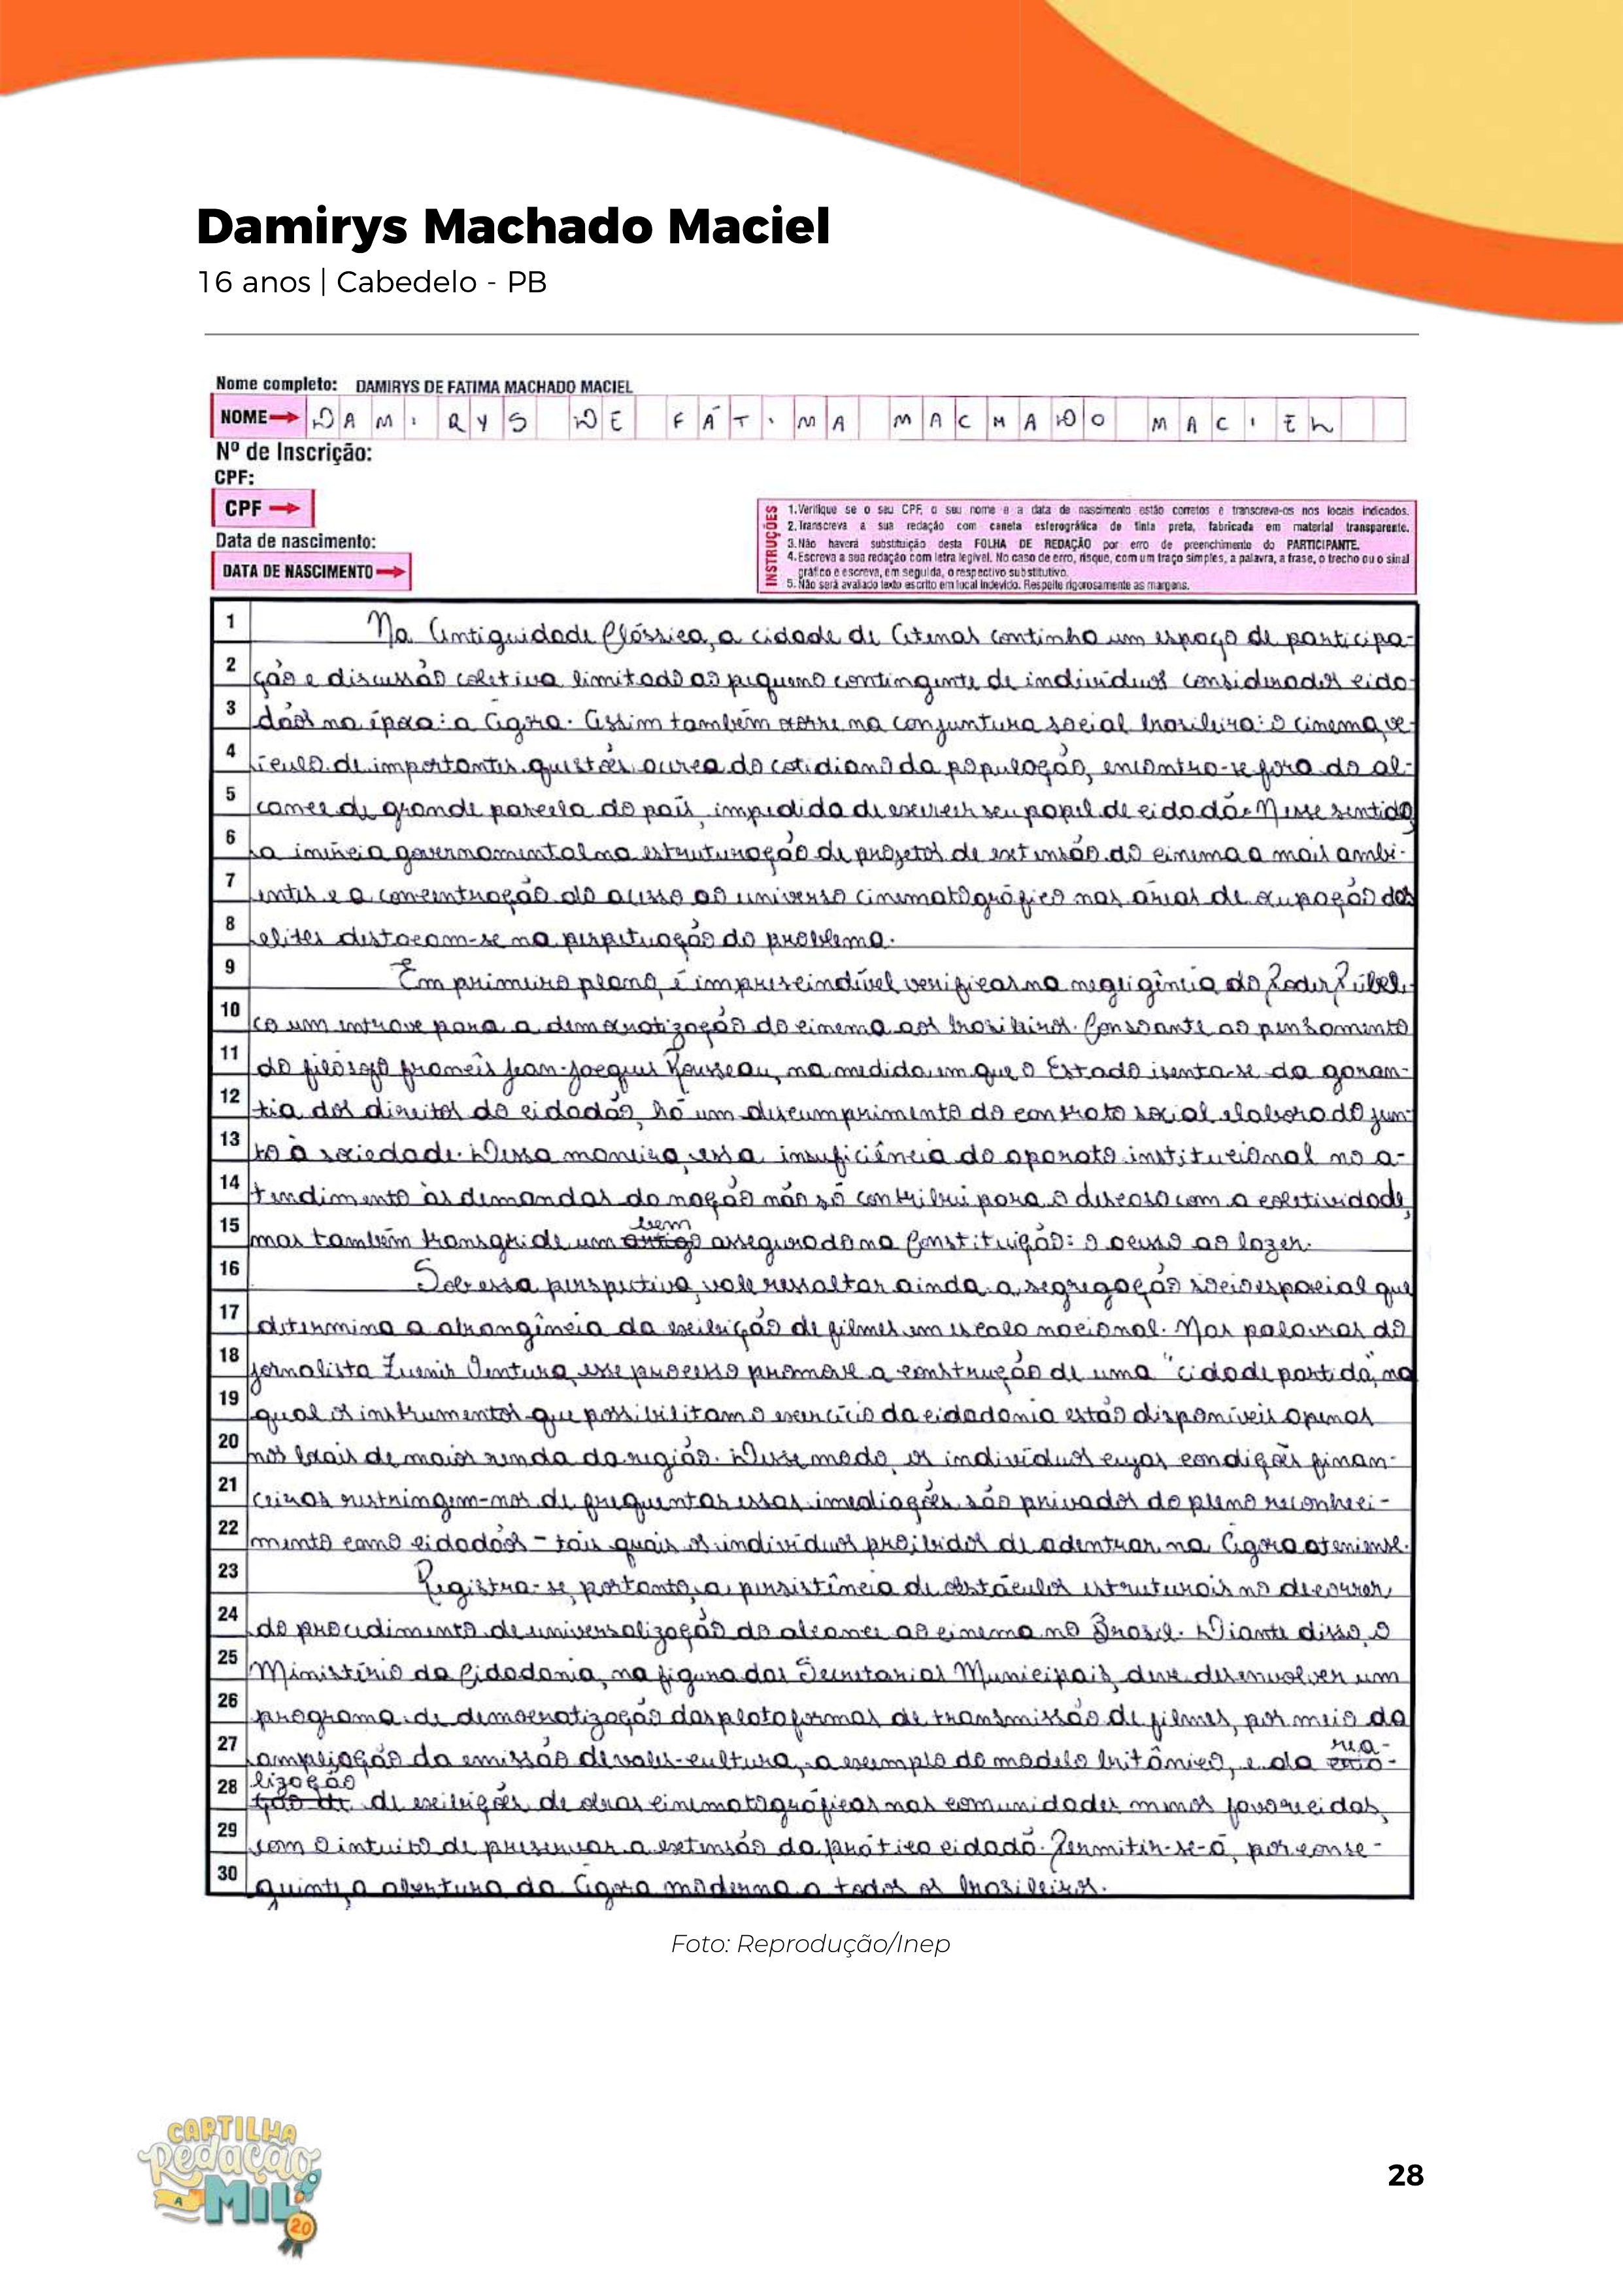 Damirys Machado Maciel
16 anos | Cabedelo - PB
Nome completo: DAMIRYS DE FATIMA MACHADO MACIEL
NOME DAMIRYS DE FÁTIMA MACHADO MACIEL
Nº de Inscrição:
CPF:
CPF
Data de nascimento:
DATA DE NASCIMENTO
INSTRUÇÕES
1.Verifique se o seu CPF, o seu nome e a data de nascimento estão corretos e transcreva-os nos locais indicados.
2.Transcreva a sua redação com caneta esferográfica de tinta preta, fabricada em material transparente.
3.Não haverá substituição desta FOLHA DE REDAÇÃO por erro de preenchimento do PARTICIPANTE.
4.Escreva a sua redação com letra legível. No caso de erro, risque, com um traço simples, a palavra, a frase, o trecho ou o sinal
gráfico e escreva, em seguida, o respectivo substitutivo.
5.Não será avaliado texto escrito em local indevido. Respeite rigorosamente as margens.
1 Na Antiguidade Clássica, a cidade de Atenas continha um espaço de participa-
2 ção e discussão coletiva limitado ao pequeno contingente de indivíduos considerados cida-
3 dãos na época: a Ágora. Assim também ocorre na conjuntura social brasileira: o cinema, ve-
4 ículo de importantes questões acerca do cotidiano da população, encontra-se fora do al-
5 cance de grande parcela do país, impedida de exercer seu papel de cidadã. Nesse sentido,
6 a inércia governamental na estruturação de projetos de extensão do cinema a mais ambi-
7 entes e a concentração do acesso ao universo cinematográfico nas áreas de ocupação das
8 elites destacam-se na perpetuação do problema.
9 Em primeiro plano, é imprescindível verificar na negligência do Poder Públi-
10 co um entrave para a democratização do cinema aos brasileiros. Consoante ao pensamento
11 do filósofo francês Jean-Jacques Rousseau, na medida em que o Estado isenta-se da garan-
12 tia dos direitos do cidadão, há um descumprimento do contrato social elaborado jun-
13 to à sociedade. Dessa maneira, essa insuficiência do aparato institucional no a-
14 tendimento às demandas da nação não só contribui para o descaso com a coletividade,
15 mas também transgride um artigo bem assegurado na Constituição: o acesso ao lazer.
16 Sob essa perspectiva, vale ressaltar ainda a segregação socioespacial que
17 determina a abrangência da exibição de filmes em escala nacional. Nas palavras do
18 jornalista Zuenir Ventura, esse processo promove a construção de uma "cidade partida", na
19 qual os instrumentos que possibilitam o exercício da cidadania estão disponíveis apenas
20 nos locais de maior renda da região. Desse modo, os indivíduos cujas condições finan-
21 ceiras restringem-nos de frequentar essas imediações são privados do pleno reconheci-
22 mento como cidadãos – tais quais os indivíduos proibidos de adentrar na Ágora ateniense.
23 Registra-se, portanto, a persistência de obstáculos estruturais no decorrer
24 do procedimento de universalização do alcance ao cinema no Brasil. Diante disso, o
25 Ministério da Cidadania, na figura das Secretarias Municipais, deve desenvolver um
26 programa de democratização das plataformas de transmissão de filmes, por meio da
27 ampliação da emissão de vales-cultura, a exemplo do modelo britânico, e da rea-
28 lização de exibições de obras cinematográficas nas comunidades menos favorecidas,
29 com o intuito de preservar a extensão da prática cidadã. Permitir-se-á, por conse-
30 guinte, a abertura da Ágora moderna a todos os brasileiros.
Foto: Reprodução/Inep
CARTILHA
Redação
A MIL
20
28